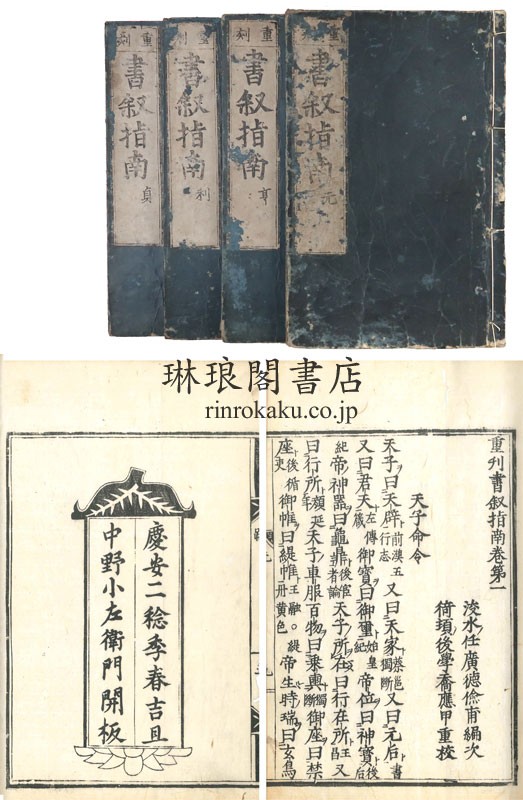 重刻
書叙指南
元
重刻
書叙指南
亨
書叙指南
利
重刻
書叙指南
貞
琳琅閣書店
rinrokaku.co.jp
重刊書叙指南卷第一
浚水任廣德儉甫編次
猗頊後學喬應甲重校
天子命令
天子曰天辟前漢五行志又曰天家蔡邕獨斷又曰元后書
又曰君天左傳御寶曰御璽始皇紀帝位曰神寶後
紀帝神器曰龜鼎後宦者論天子所在曰行在所王又
曰行所年顔延天子車服百物曰乘輿獨斷御座曰禁
座後循吏御帷曰緹帷王融。緹帝生時瑞曰玄鳥
慶安二稔季春吉旦
中野小左衛門開板